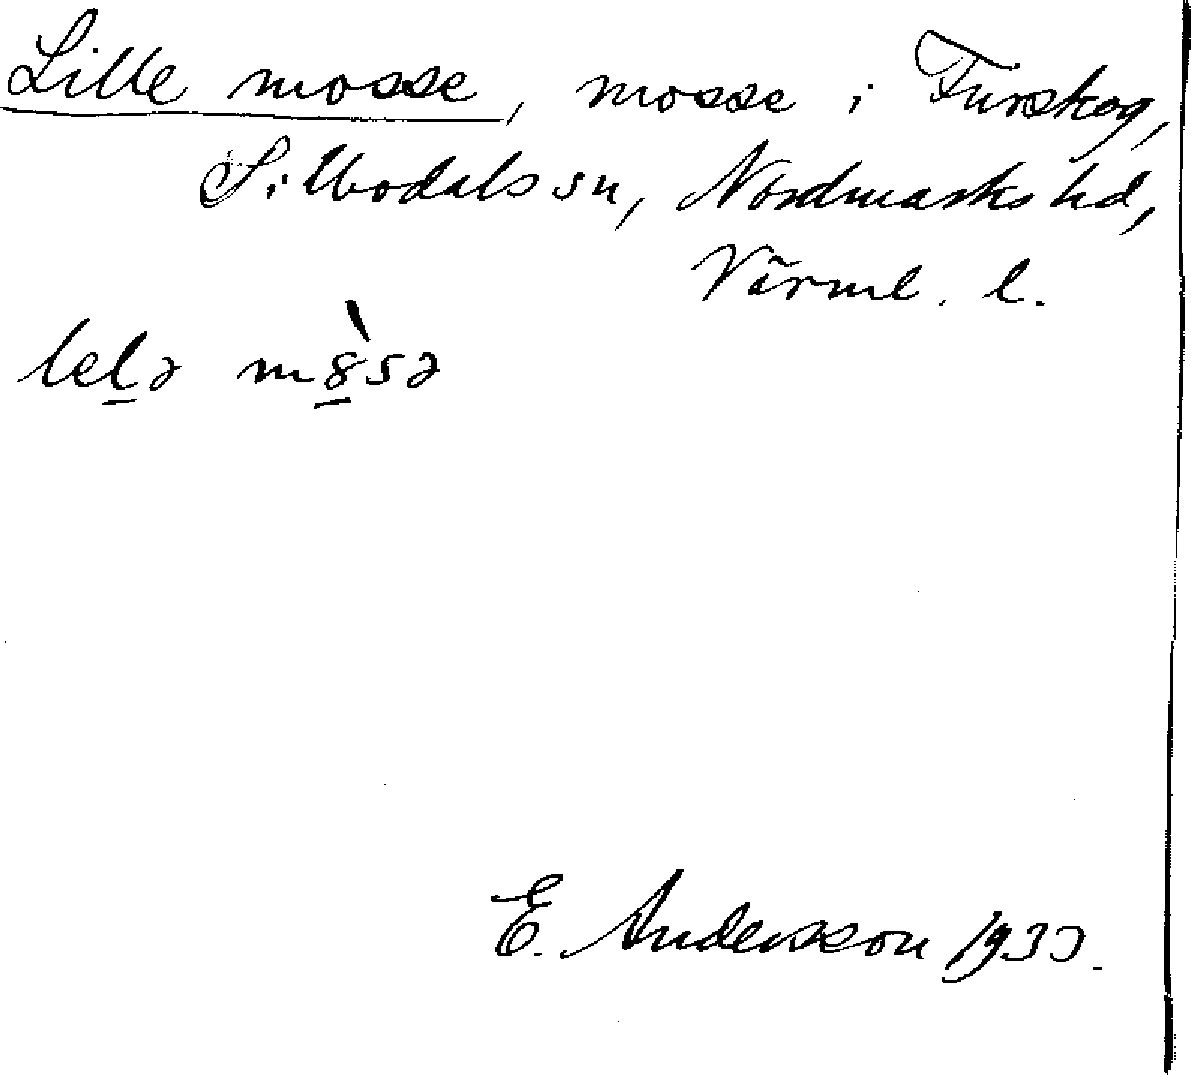 Lille mosse, mosse i Furskog,
Silbodals sn, Nordmarks hd,
Värml. l.
lelə m8̀sə
E. Andersson 1933.